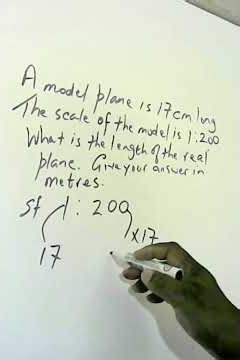 A model plane is 17cm long
The scale of the model is 1:200
What is the length of the real
plane. Give your answer in
metres.
Sf 1 : 200
x17
17